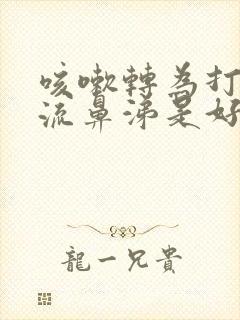 咳嗽轉為打
流鼻涕是好
龍一兄貴